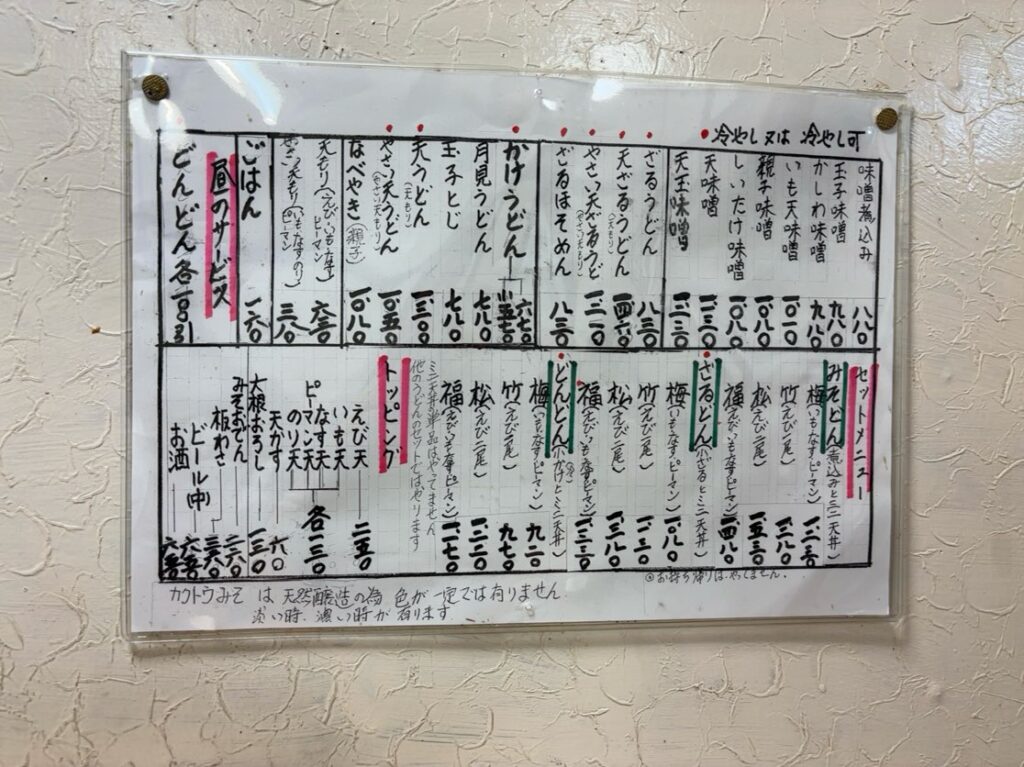 ●冷やし又は 冷やし可
味噌煮込み 八八〇
玉子味噌 九八〇
かしわ味噌 九八〇
いも天味噌 一、〇一〇
親子味噌 一、〇八〇
しいたけ味噌 一、〇八〇
天味噌
天玉味噌
ざるうどん 八三〇
天ざるうどん
やさい天ざるうどん(やさい天もり)
ざるほそめん 八三〇
かけうどん 六七〇 小五七〇
月見うどん 七八〇
玉子とじ 七八〇
天うどん(天もり)
やさい天うどん(やさい天もり) 一、〇五〇
なべやき(親子) 一、〇八〇
天もり(えび・いも・なす・ピーマン)
やさい天もり(いも・なす・のり・ピーマン)
ごはん 一六〇
昼のサービス
どんどん各一〇〇引
セットメニュー
みそどん(煮込みとミニ天丼)
梅(いも・なす・ピーマン)
竹(えび一尾)
松(えび二尾)
福(えび・いも・なす・ピーマン) 一、四八〇
ざるどん(小ざるとミニ天丼)
梅(いも・なす・ピーマン) 一、〇八〇
竹(えび一尾)
松(えび二尾)
福(えび・いも・なす・ピーマン)
どんどん(小かけとミニ天丼)
梅(いも・なす・ピーマン) 九二〇
竹(えび一尾) 九七〇
松(えび二尾)
福(えび・いも・なす・ピーマン)
ミニ天丼の単品はやってません
他のうどんのセットではやります
トッピング
えび天 二五〇
いも天
なす天
ピーマン天
のり天 各一三〇
天かす 六〇
大根おろし 一三〇
みそおでん
板わさ
ビール(中)
お酒
◎お持ち帰りはやってません。
カクトウみそ は 天然醸造の為 色が一定では有りません
淡い時、濃い時が有ります